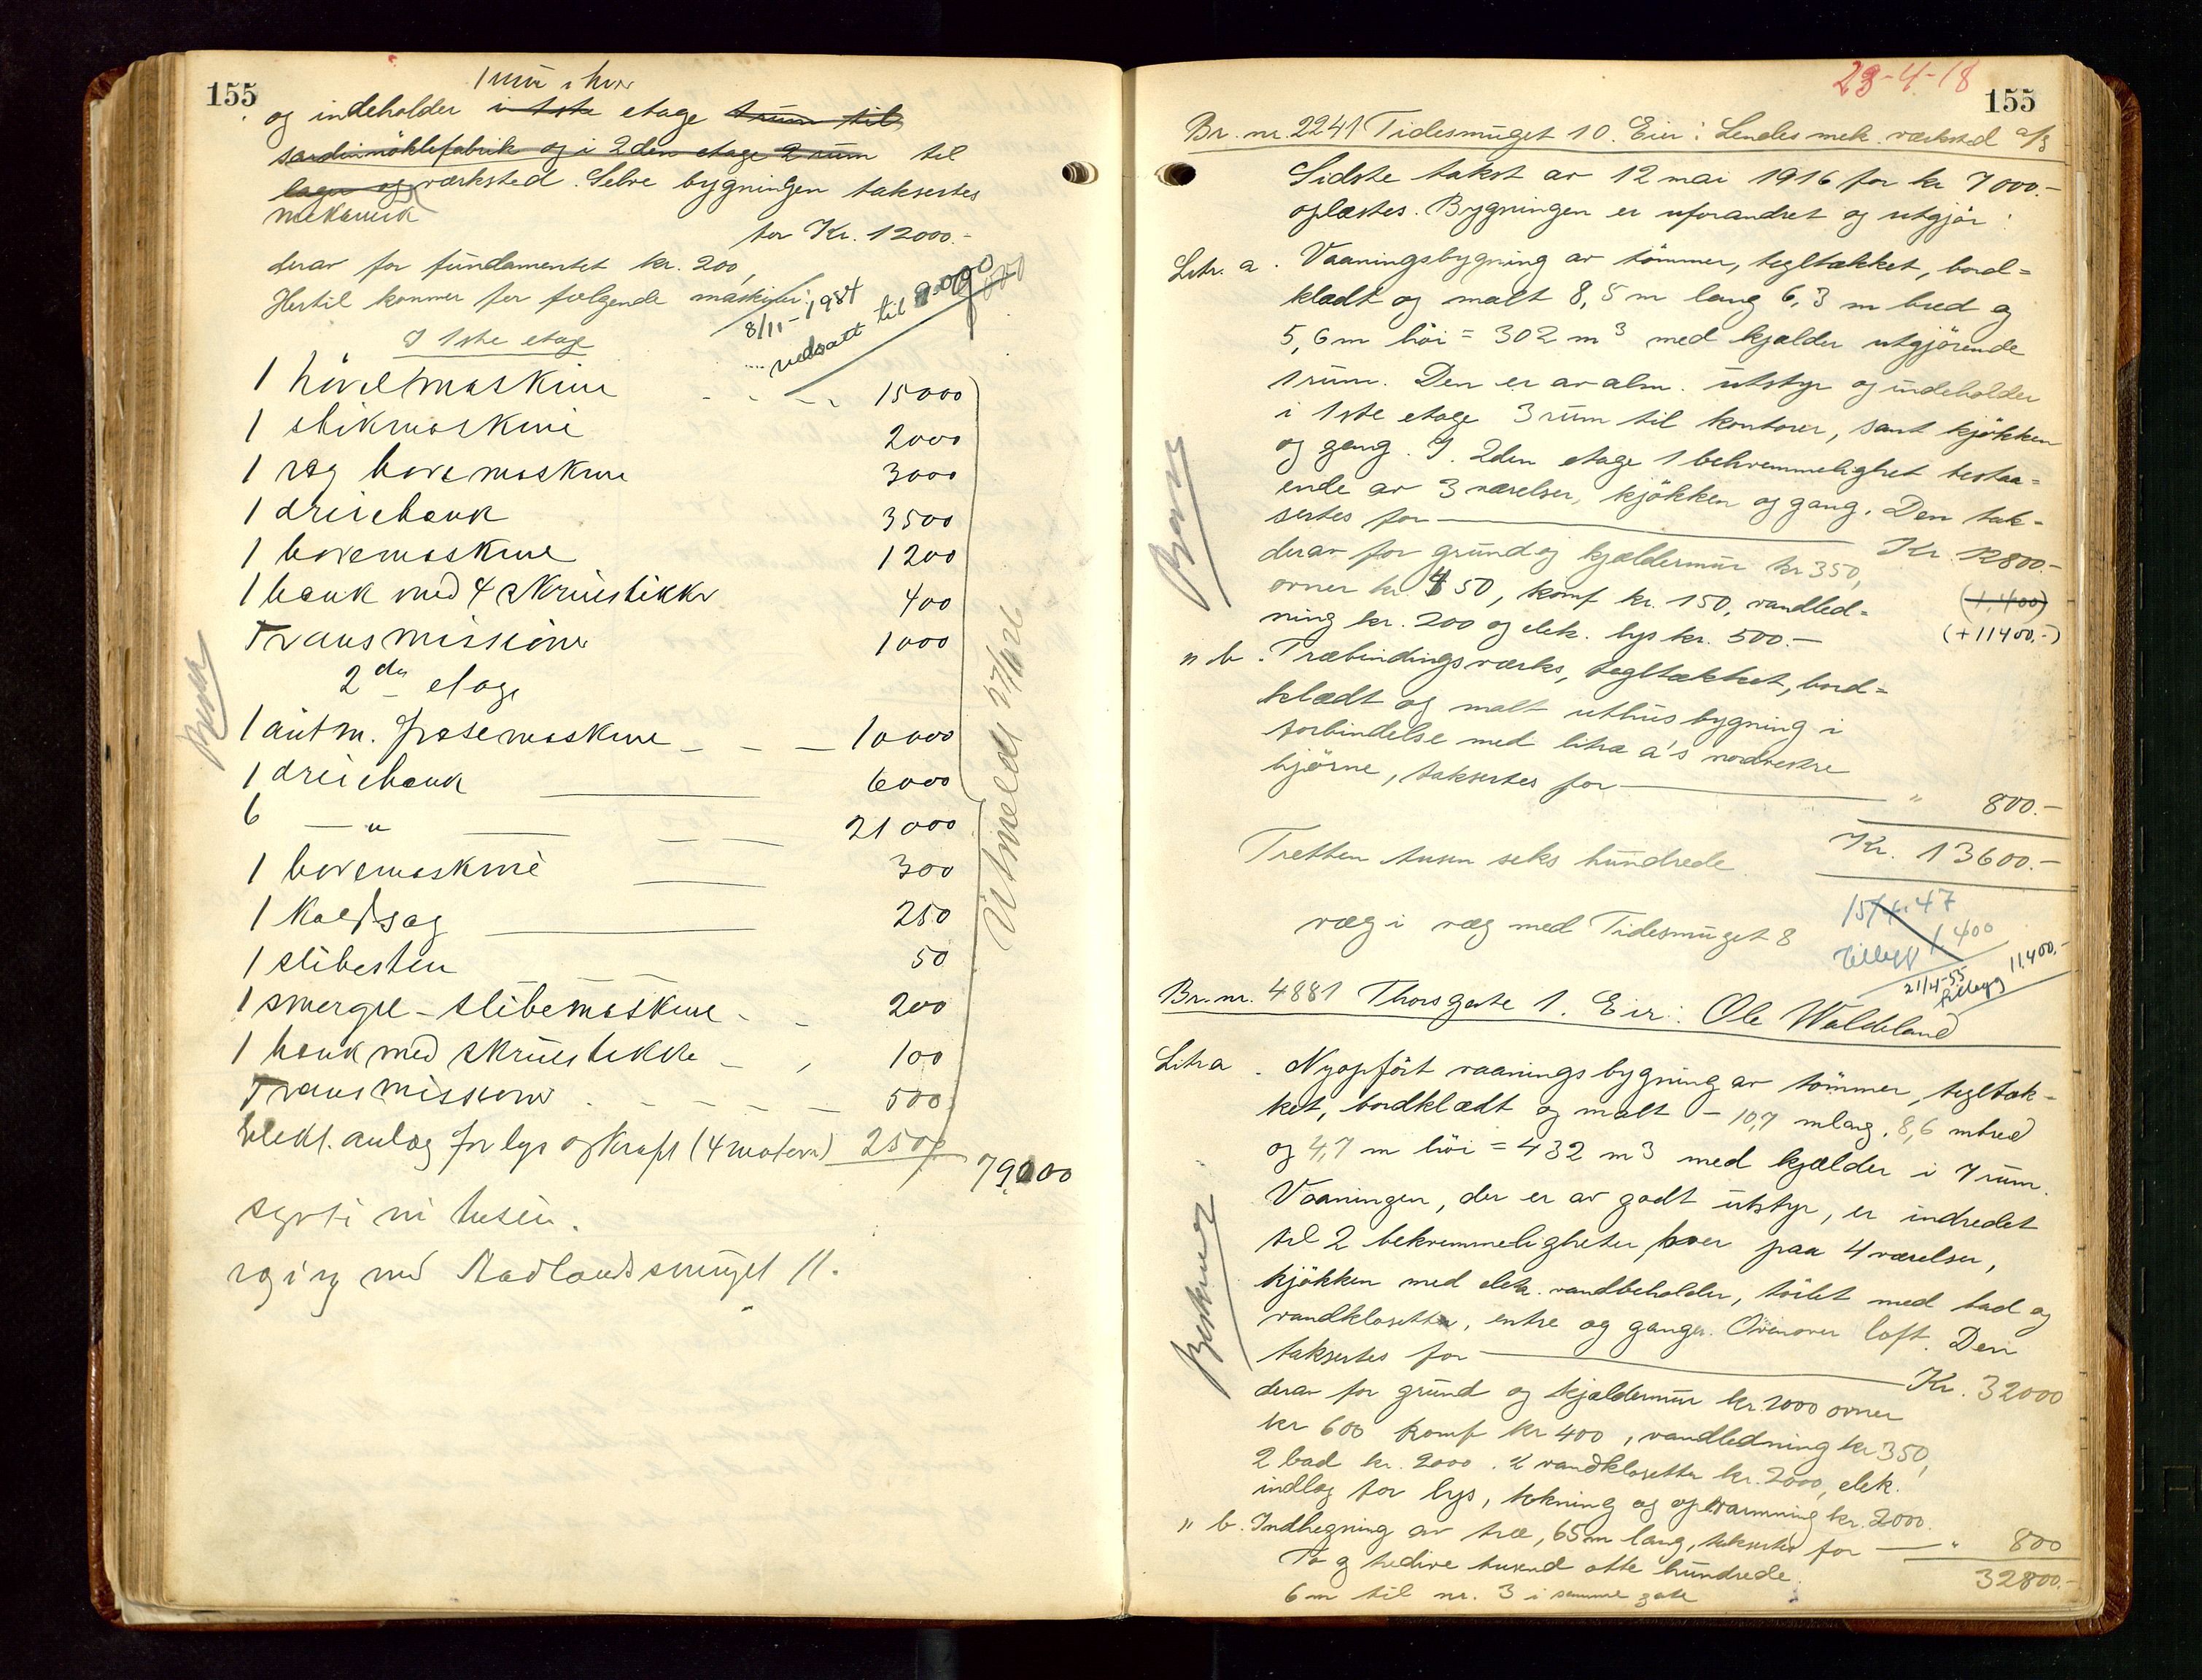 155
1 rum i hver
og indeholder i 1ste etage 1 rum til
sardinnöklefabrik og i 2den etage 2 rum til
lager og værksted. Selve bygningen taksertes
mekanisk
for Kr. 12000.-
derav for fundamentet kr. 200,
Hertil kommer for følgende maskiner:
8/11-1934
nedsatt til 9.000
I 1ste etage
1 hövelmaskine - - - - 15000
1 stikmaskine 2000
1 bore maskine 3000
1 dreiebank 3500
1 boremaskine 1200
1 bank med 4 skruestikker 400
Transmissioner 1000
2den etage
1 autm. fræsemaskine - - - 10000
1 dreiebank 6000
6 -"- 21000
1 boremaskine 300
1 Koldsag 250
1 slibesten 50
1 smergel-slibemaskine - - 200
1 bank med skruestikke - , 100
Transmissioner - - - - 500
Elekt. anlæg for lys og Kraft (4 motorer) 2500
79000
sytti ni tusen.
væg i væg med Stadlandssmuget 11.
Utmeldt
23-4-18
155
Br. nr. 2241 Tidesmuget 10. Eier: Lendes mek. værksted a/s
Sidste takst av 12 mai 1916 for kr 7000.-
oplæstes. Bygningen er uforandret og utgjör:
Litr. a. Vaaningsbygning av tömmer, tegltækket, bord=
klædt og malt 8,5 m lang 6,3 m bred og
5,6 m höi = 302 m3 med kjælder utgjörende
1 rum. Den er av alm. utstyr og indeholder
i 1ste etage 3 rum til kontorer, samt kjökken
og gang. I 2den etage 1 bekvemmelighet bestaa=
ende av 3 værelser, kjökken og gang. Den tak=
sertes for Kr. 12800.-
derav for grund og kjældermur kr 350,
ovner kr. 450, komf kr. 150, vandled=
(1.400)
ning kr. 200 og elek. lys kr. 500.-
(+11400,-)
" b. Træbindingsværks, tegltækket, bord=
klædt og malt uthusbygning i
forbindelse med litra a's nordvestre
hjörne, taksertes for " 800.-
Kr. 13600.-
Tretten tusen seks hundrede.
væg i væg med Tidesmuget 8
15/4.47
Tillegg 1.400
21/4-55
tillegg 11.400,-
Br. nr. 4881 Thorsgate 1. Eier: Ole Waldeland
Litra a. Nyopfört vaaningsbygning av tömmer, tegltæk-
ket, bordklædt og malt - 10,7 m lang, 8,6 m bred
og 4,7 m höi = 432 m3 med kjælder i 7 rum.
Vaaningen, der er av godt utstyr, er indredet
til 2 bekvemmeligheter hver paa 4 værelser,
kjökken med elek. vandbeholder, toilet med bad og
vandklosetter, entre og ganger. Ovenover loft. Den
taksertes for Kr. 32000
derav for grund og kjældermur kr. 2000 ovner
kr 600 komf kr 400, vandledning kr 350,
2 bad kr. 2000. 2 vandklosetter kr. 2000, elek.
indlæg for lys, kokning og opvarmning kr. 2000.
" b. Indhegning av træ, 65 m lang, taksertes for " 800
To og tredive tusend otte hundrede. 32800.-
6 m til nr. 3 i samme gate